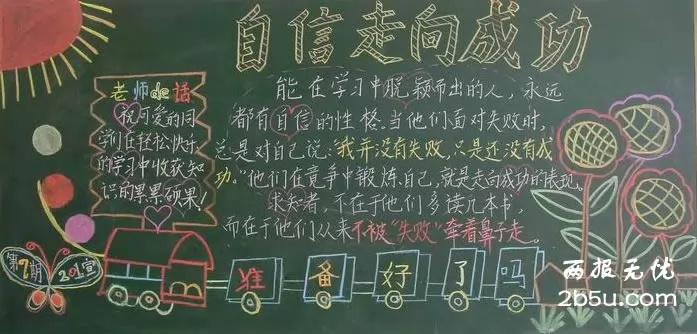 自信走向成功
老师de话
祝可爱的同
学们在轻松快乐
的学习中收获知
识的累累硕果！
能在学习中脱颖而出的人，永远
都有自信的性格。当他们面对失败时，
总是对自己说："我并没有失败，只是还没有成
功。"他们在竞争中锻炼自己，就是走向成功的表现。
求知者，不在于他们多读几本书，
而在于他们从来不被"失败"牵着鼻子走。
第 期
201宣
准备好了吗
两报无优
2b5u.com